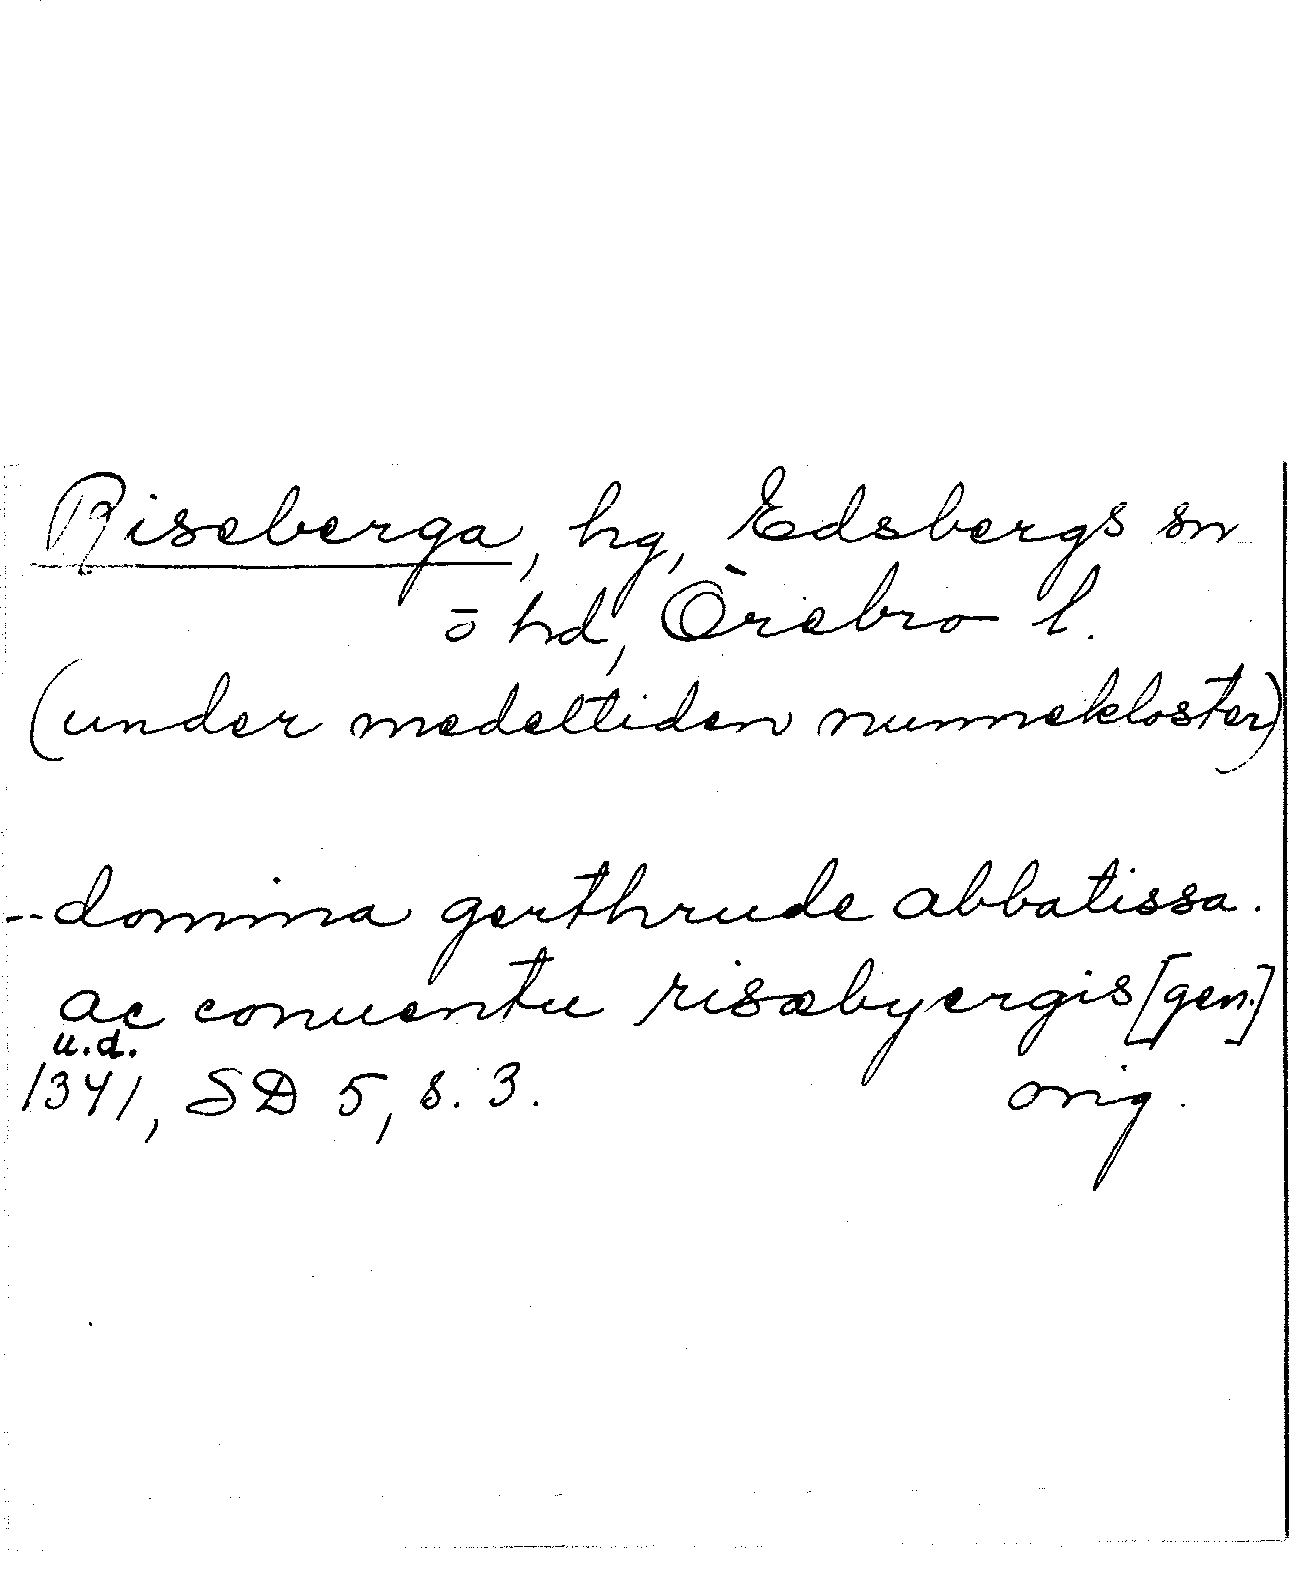 Riseberga, hg, Edsbergs sn
o hd, Örebro l.
(under medeltiden nunnekloster)
--domina gerthrude abbatissa.
ac conuentu risæbyergis [gen.]
u.d.
1341, SD 5, s. 3. orig.